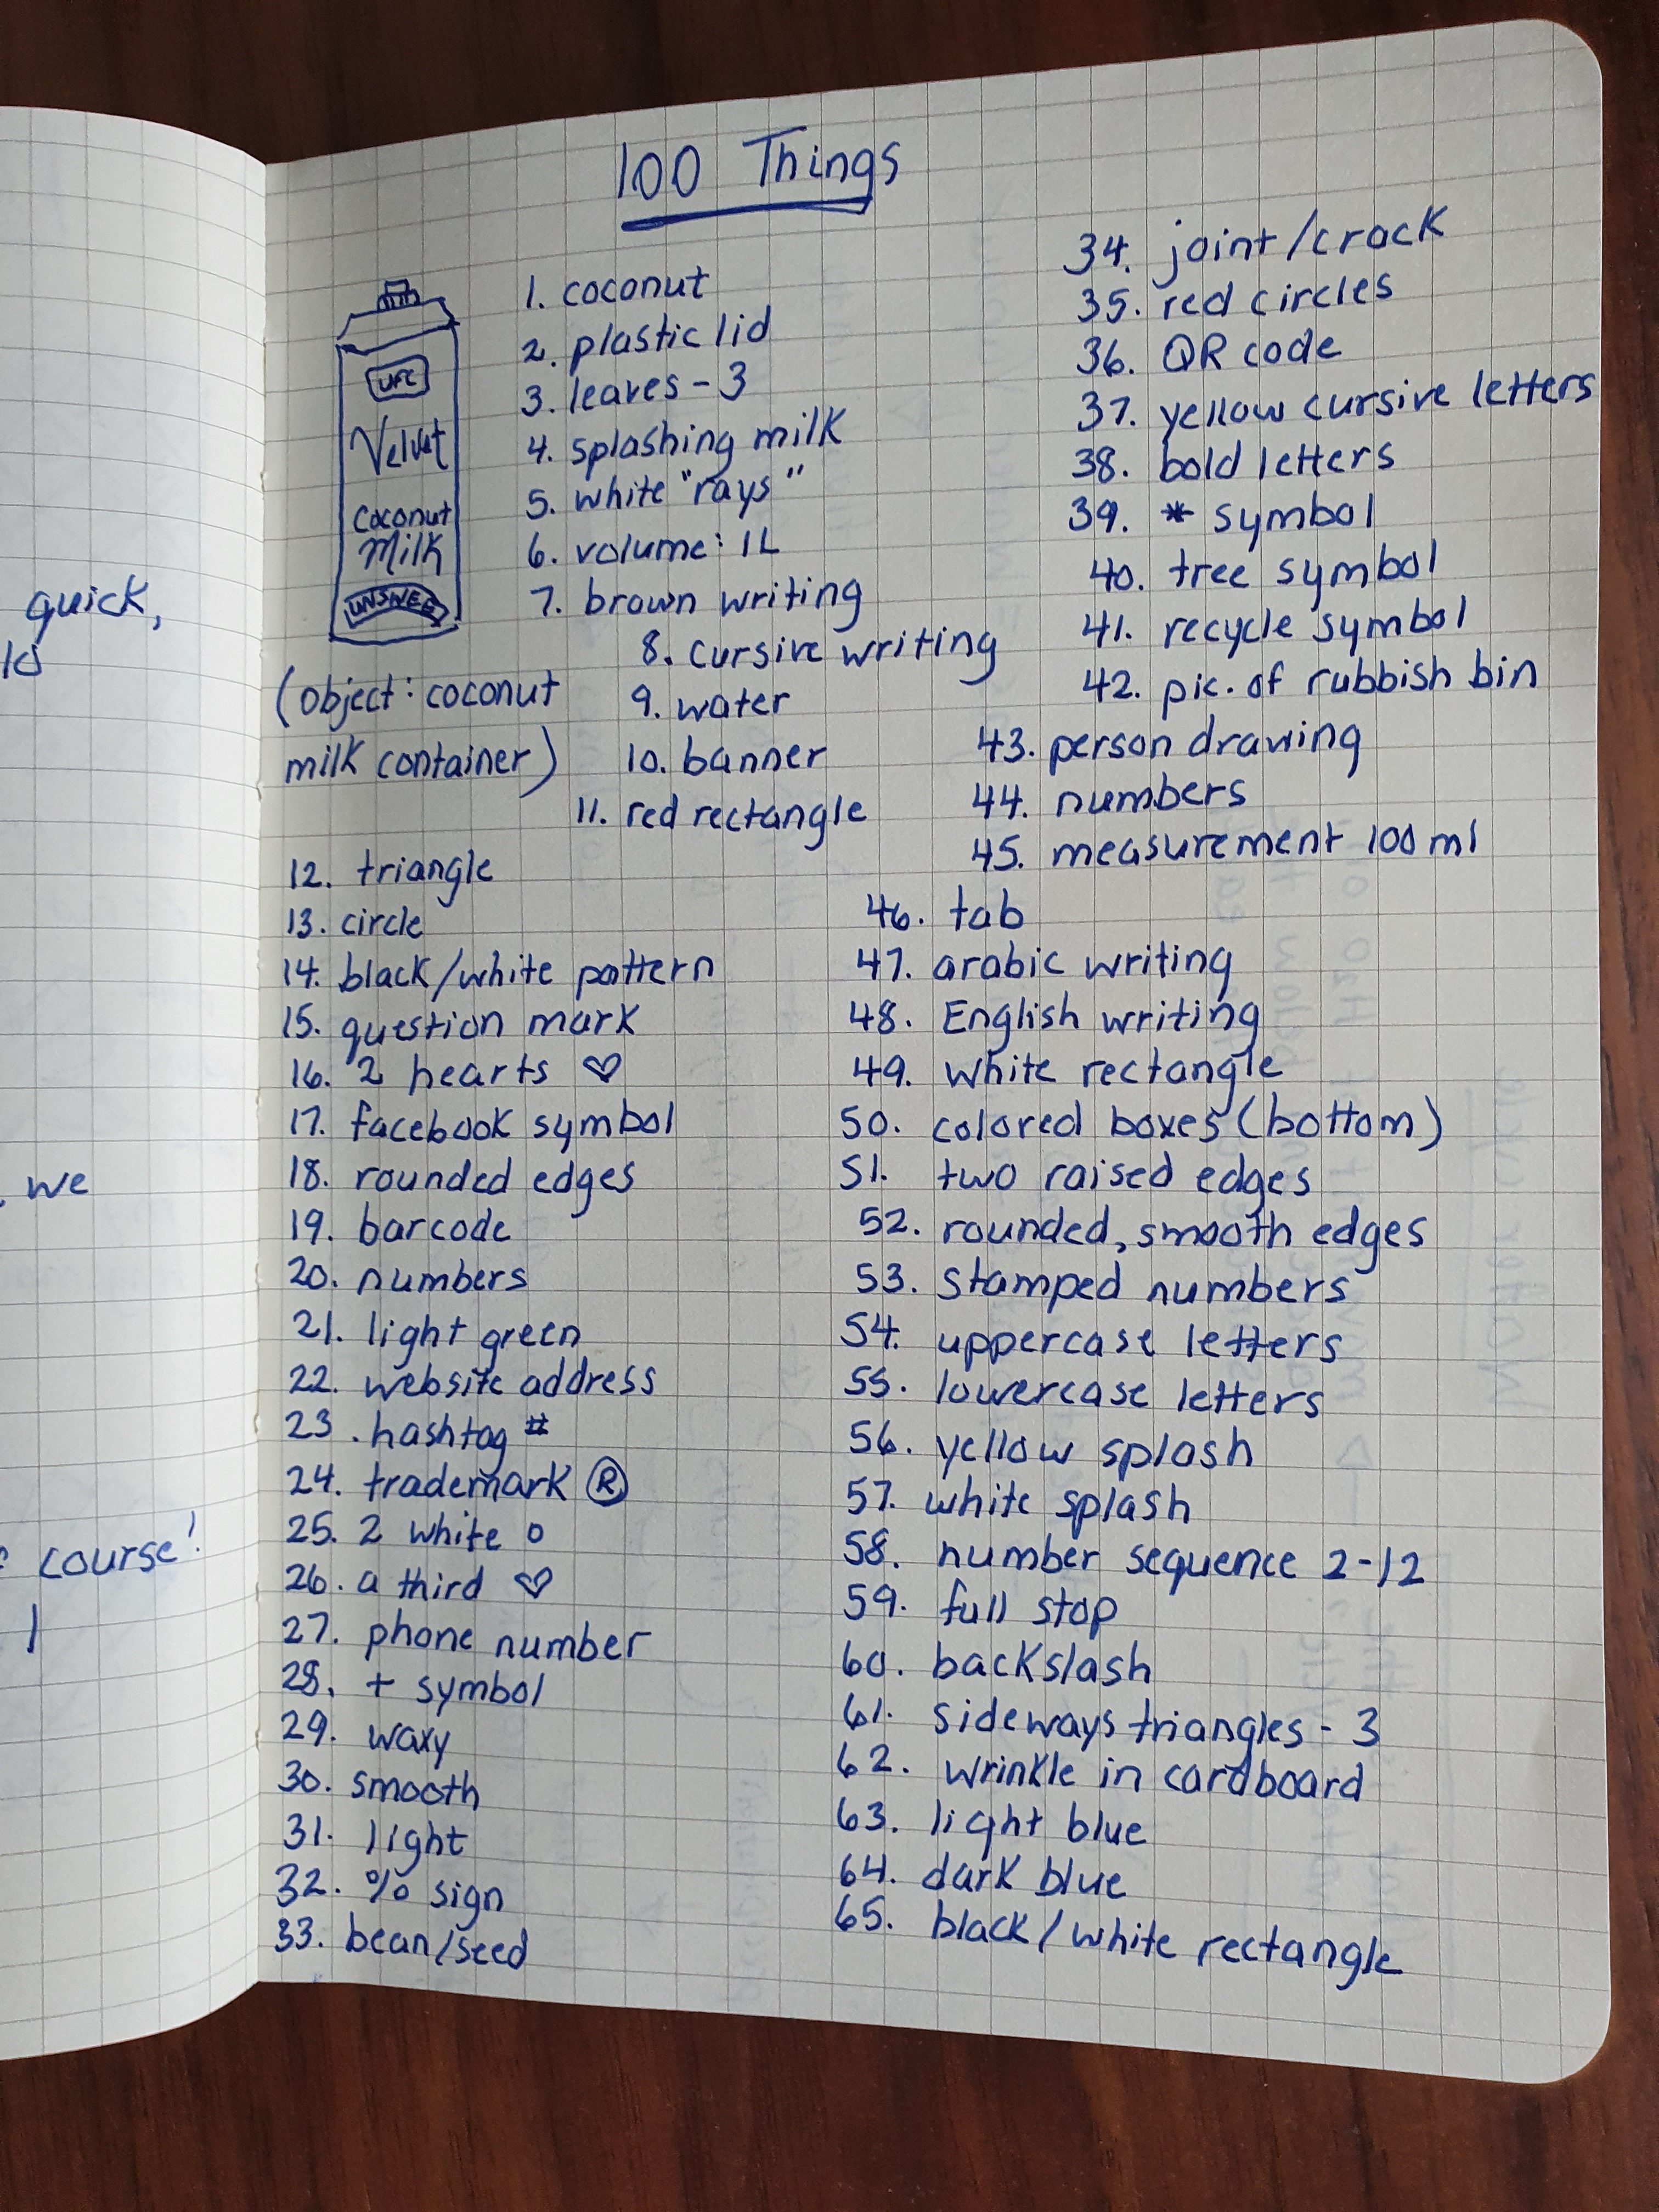 quick,
we
course!
100 Things
UFC
Velvet
Coconut
Milk
UNSWEE
(object: coconut
milk container)
1. coconut
2. plastic lid
3. leaves - 3
4. splashing milk
5. white "rays"
6. volume: 1L
7. brown writing
8. cursive writing
9. water
10. banner
11. red rectangle
12. triangle
13. circle
14. black/white pattern
15. question mark
16. 2 hearts ♡
17. facebook symbol
18. rounded edges
19. barcode
20. numbers
21. light green
22. website address
23. hashtag #
24. trademark ®
25. 2 white o
26. a third ♡
27. phone number
28. + symbol
29. waxy
30. smooth
31. light
32. % sign
33. bean/seed
34. joint/crack
35. red circles
36. QR code
37. yellow cursive letters
38. bold letters
39. * symbol
40. tree symbol
41. recycle symbol
42. pic. of rubbish bin
43. person drawing
44. numbers
45. measurement 100 ml
46. tab
47. arabic writing
48. English writing
49. white rectangle
50. colored boxes (bottom)
51. two raised edges
52. rounded, smooth edges
53. stamped numbers
54. uppercase letters
55. lowercase letters
56. yellow splash
57. white splash
58. number sequence 2-12
59. full stop
60. backslash
61. sideways triangles - 3
62. wrinkle in cardboard
63. light blue
64. dark blue
65. black/white rectangle